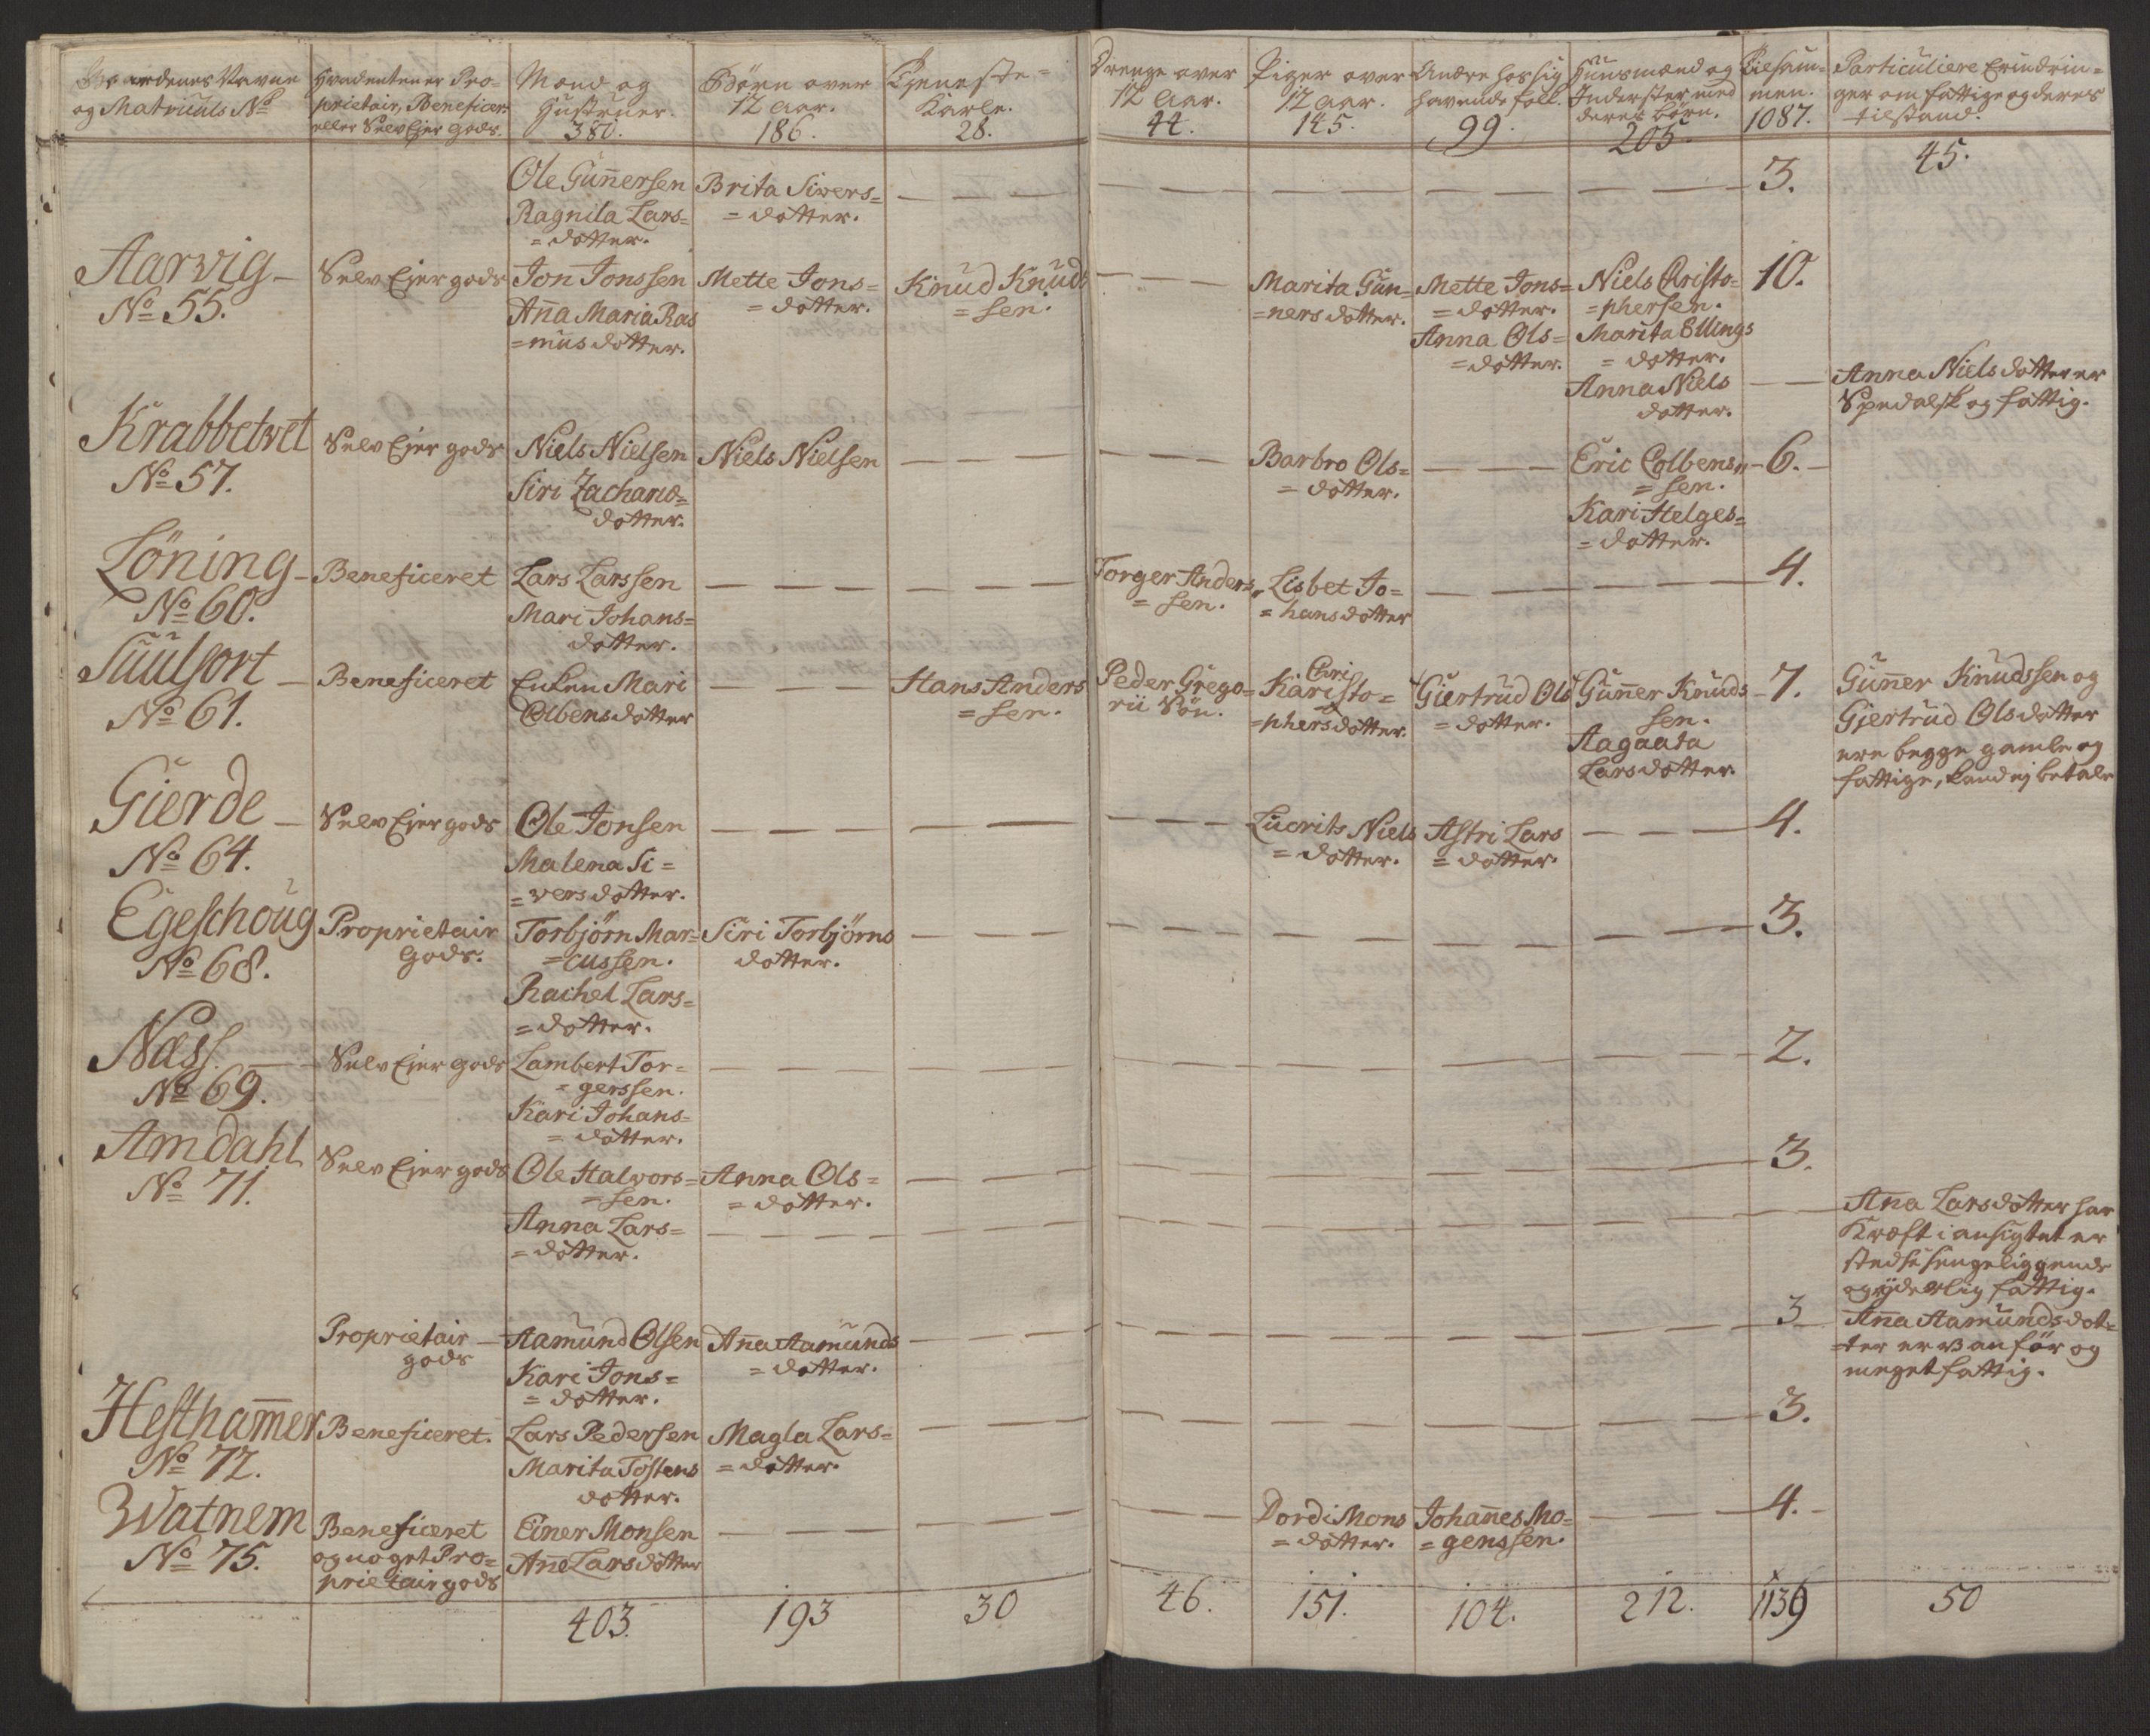 Gaardenes Navne
og Matriculs No
Hvad enten er Pro-
prietair, Beneficer.
eller SelvEjer Gods.
Mænd og
Hustruer.
380.
Börn over
12 Aar.
186.
Tjeneste-
Karle.
28.
Drenge over
12 Aar.
44.
Piger over
12 Aar.
145.
Andre hos sig
havende folk.
99.
Huusmænd og
Inderster med
deres börn.
205.
Tilsam-
men.
1087.
Particuliere Erindrin-
ger om fattige og deres
tilstand.
45.
Ole Guñersen
Ragnila Lars=
=dotter.
Brita Sivers=
=dotter.
3.
Aarvig
No 55.
Selv Ejer gods
Jon Jonssen
Aña Maria Ras
=mus dotter.
Mette Jons=
=dotter.
Knud Knud
=sen.
Marita Gun=
=ners dotter.
Mette Jons=
=dotter.
Anna Ols=
=dotter.
Niels Christo=
=phersen.
Marita Ellings
=dotter.
Anna Niels
dotter.
10.
Anna Niels dotter er
Spedalsk og fattig.
Krabbetvet
No 57.
Selv Ejer gods
Niels Nielsen
Siri Zacharia=
dotter.
Niels Nielsen
Barbro Ols=
=dotter.
Eric Colbens
=sen.
Kari Helges=
=dotter.
6.
Löning
No 60.
Beneficeret
Lars Larssen
Mari Johans=
dotter.
Torger Anders
=sen.
Lisbet Jo=
=hans dotter
4.
Suulfort
No 61.
Beneficeret
Enken Mari
Colbens dotter
Hans Anders
=sen.
Peder Grego=
rii Sön.
Kari Christo=
=phers dotter.
Giertrud Ols
=dotter.
Guñer Knuds
sen.
Aagaata
Lars dotter
7.
Guñer Knudssen og
Gjertrud Ols dotter
ere begge gamle og
fattige, kand ej betale
Gierde
No 64.
Selv Ejer gods
Ole Jonsen
Malena Si=
=vers dotter.
Lucrits Niels
=dotter.
Astri Lars
=dotter.
4.
Egeschoug
No 68.
Proprietair
Gods.
Torbjörn Mar=
=cussen.
Rachel Lars=
=dotter.
Siri Torbjörns
dotter.
3.
Næss.
No 69.
Selv Ejer gods
Lambert Tor=
=gerssen.
Kari Johans=
=dotter.
2.
Amdahl
No 71.
Selv Ejer gods
Ole Halvors=
=sen.
Anna Lars=
=dotter.
Anna Ols=
=dotter.
3.
Aña Lars dotter har
Kræft i ansigtet er
stedse sengeliggende
og yderlig fattig.
Proprietair
gods
Aamund Olsen
Kari Jons=
=dotter.
Aña Aamunds
=dotter.
3
Aña Aamunds dot=
=ter er vanför og
meget fattig.
Hestham̃er
No 72.
Beneficeret.
Lars Pedersen
Marita Tostens
dotter.
Magla Lars=
=dotter.
3.
Watnem
No 75.
Beneficeret
og noget Pro=
prietair gods
Einer Monsen
Añe Lars dotter
Dordi Mons
=dotter.
Johañes Mo=
=genssen.
4.
403.
193
30
46.
151.
104.
212.
1139
50